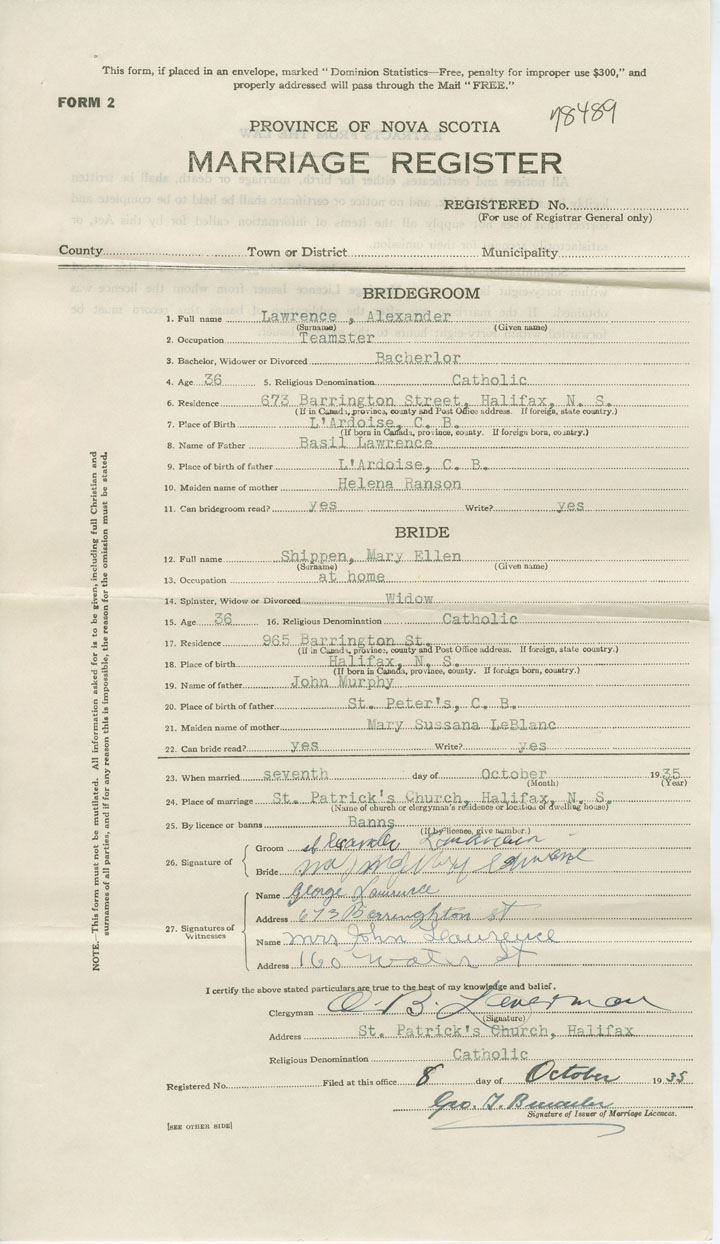 This form, if placed in an envelope, marked "Dominion Statistics—Free, penalty for improper use $300," and
properly addressed will pass through the Mail "FREE."
FORM 2
78489
PROVINCE OF NOVA SCOTIA
MARRIAGE REGISTER
REGISTERED No.
(For use of Registrar General only)
County Town or District Municipality
BRIDEGROOM
1. Full name Lawrence , Alexander
(Surname) (Given name)
2. Occupation Teamster
3. Bachelor, Widower or Divorced Bacherlor
4. Age 36 5. Religious Denomination Catholic
6. Residence 673 Barrington Street, Halifax, N. S.
(If in Canada, province, county and Post Office address. If foreign, state country.)
7. Place of Birth L'Ardoise, C. B.
(If born in Canada, province, county. If foreign born, country.)
8. Name of Father Basil Lawrence
9. Place of birth of father L'Ardoise, C. B.
10. Maiden name of mother Helena Ranson
11. Can bridegroom read? yes Write? yes
BRIDE
12. Full name Shippen, Mary Ellen
(Surname) (Given name)
13. Occupation at home
14. Spinster, Widow or Divorced Widow
15. Age 36 16. Religious Denomination Catholic
17. Residence 965 Barrington St.
(If in Canada, province, county and Post Office address. If foreign, state country.)
18. Place of birth Halifax, N. S.
(If born in Canada, province, county. If foreign born, country.)
19. Name of father John Murphy
20. Place of birth of father St. Peter's, C. B.
21. Maiden name of mother Mary Sussana LeBlanc
22. Can bride read? yes Write? yes
23. When married seventh day of October 1935
(Month) (Year)
24. Place of marriage St. Patrick's Church, Halifax, N. S.
(Name of church or clergyman's residence or location of dwelling house)
25. By licence or banns Banns
(If by licence, give number.)
26. Signature of
Groom
Bride
27. Signatures of
Witnesses
Name George Laurence
Address 673 Berringhton st
Name mrs John Laurence
Address 160 water St
I certify the above stated particulars are true to the best of my knowledge and belief.
Clergyman
(Signature)
Address St. Patrick's Church, Halifax
Religious Denomination Catholic
Registered No. Filed at this office 8 day of October 1935
Geo.
Signature of Issuer of Marriage Licences.
[SEE OTHER SIDE]
NOTE.—This form must not be mutilated. All information asked for is to be given, including full Christian and
surnames of all parties, and if for any reason this is impossible, the reason for the omission must be stated.